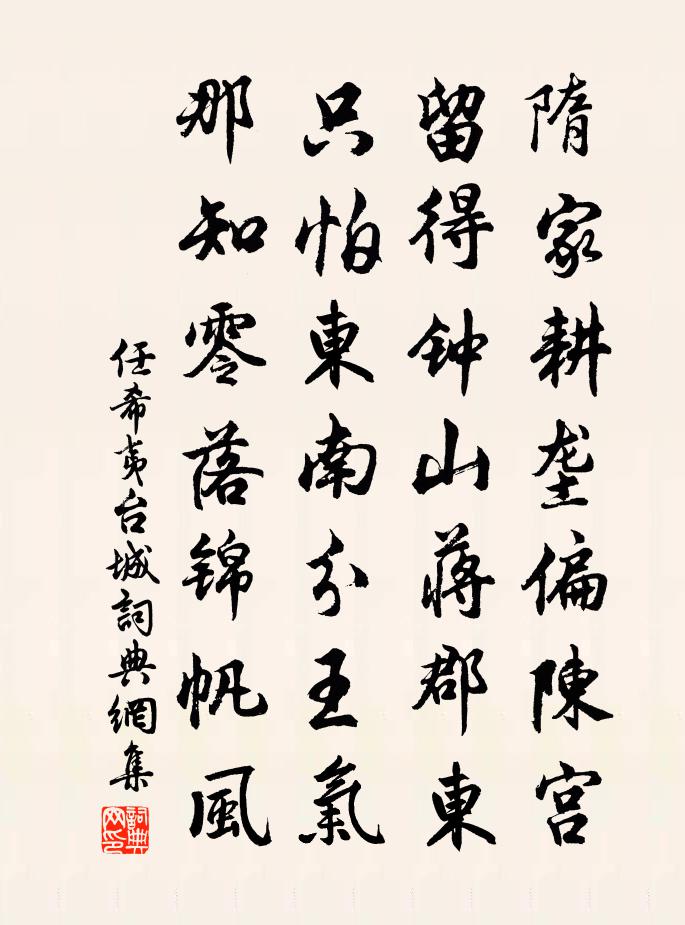 隋家耕垄偏陳宫
留得钟山蔣郡東
只怕東南分王氣
那知零落錦帆風
任希夷台城詞典網集
詞典网印